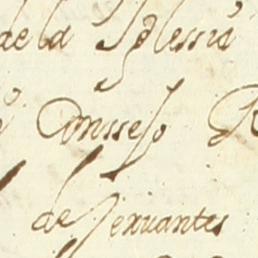 de la Iglessia
Conssejo
de Servantes